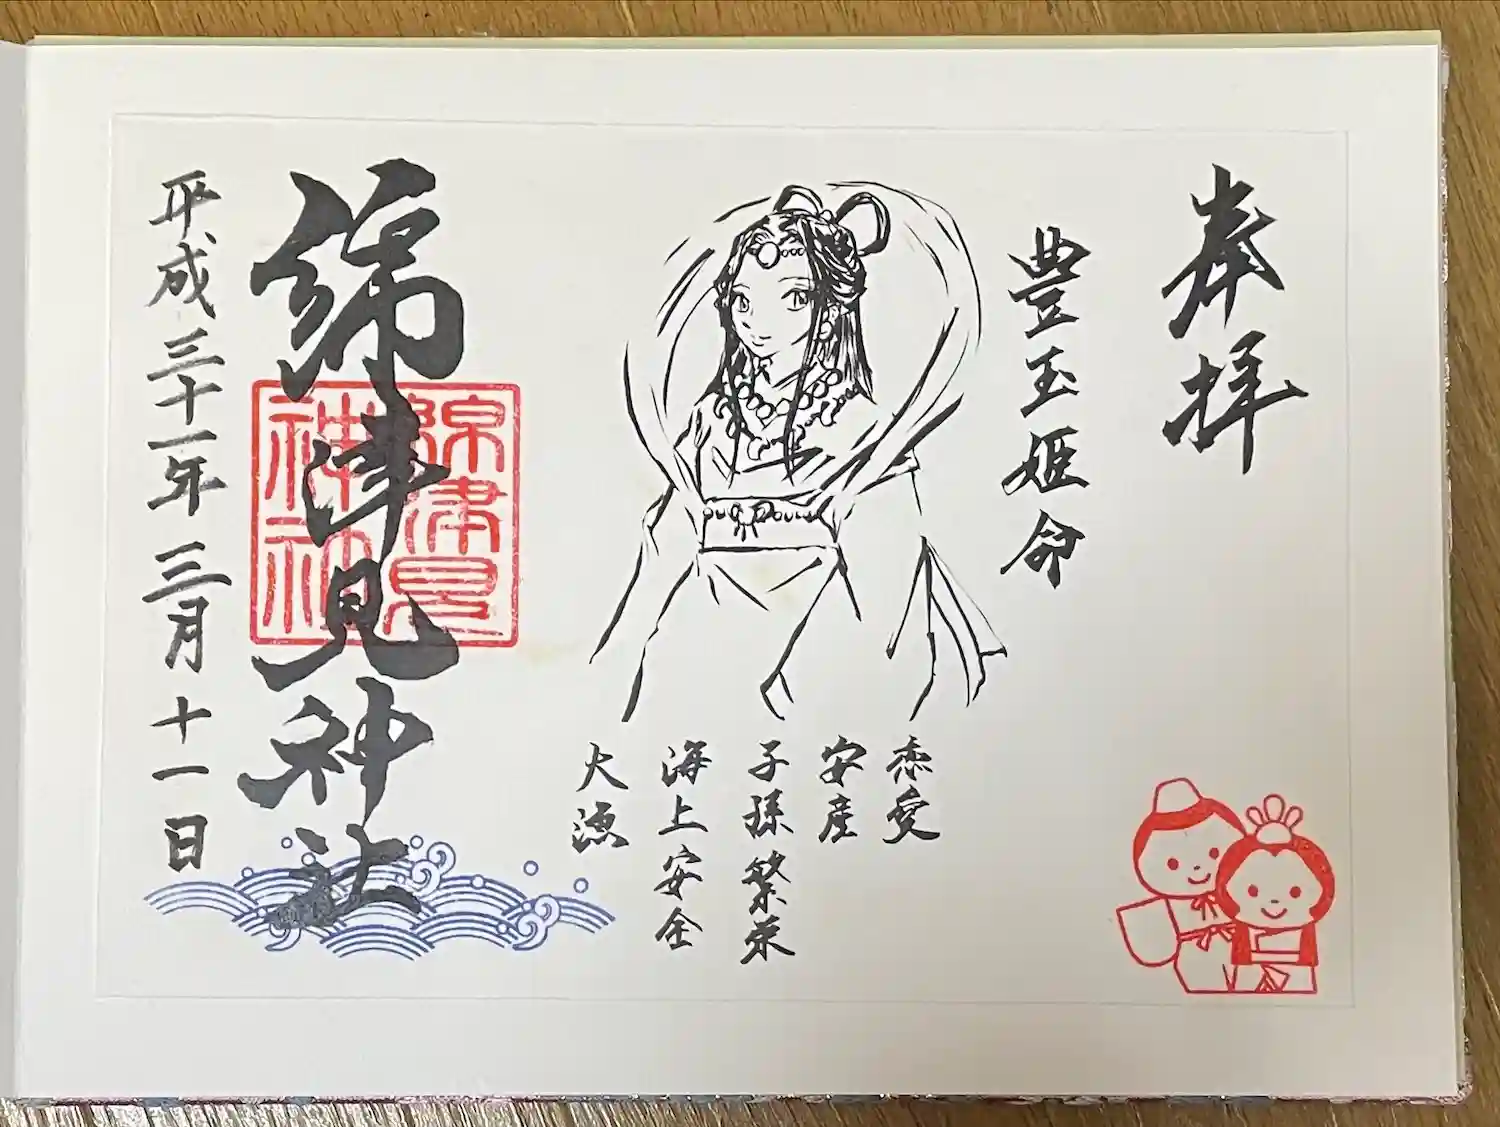 奉拝
豊玉姫命
恋愛
安産
子孫繁栄
海上安全
大漁
綿津見神社
綿津見
神社
平成三十一年三月十一日